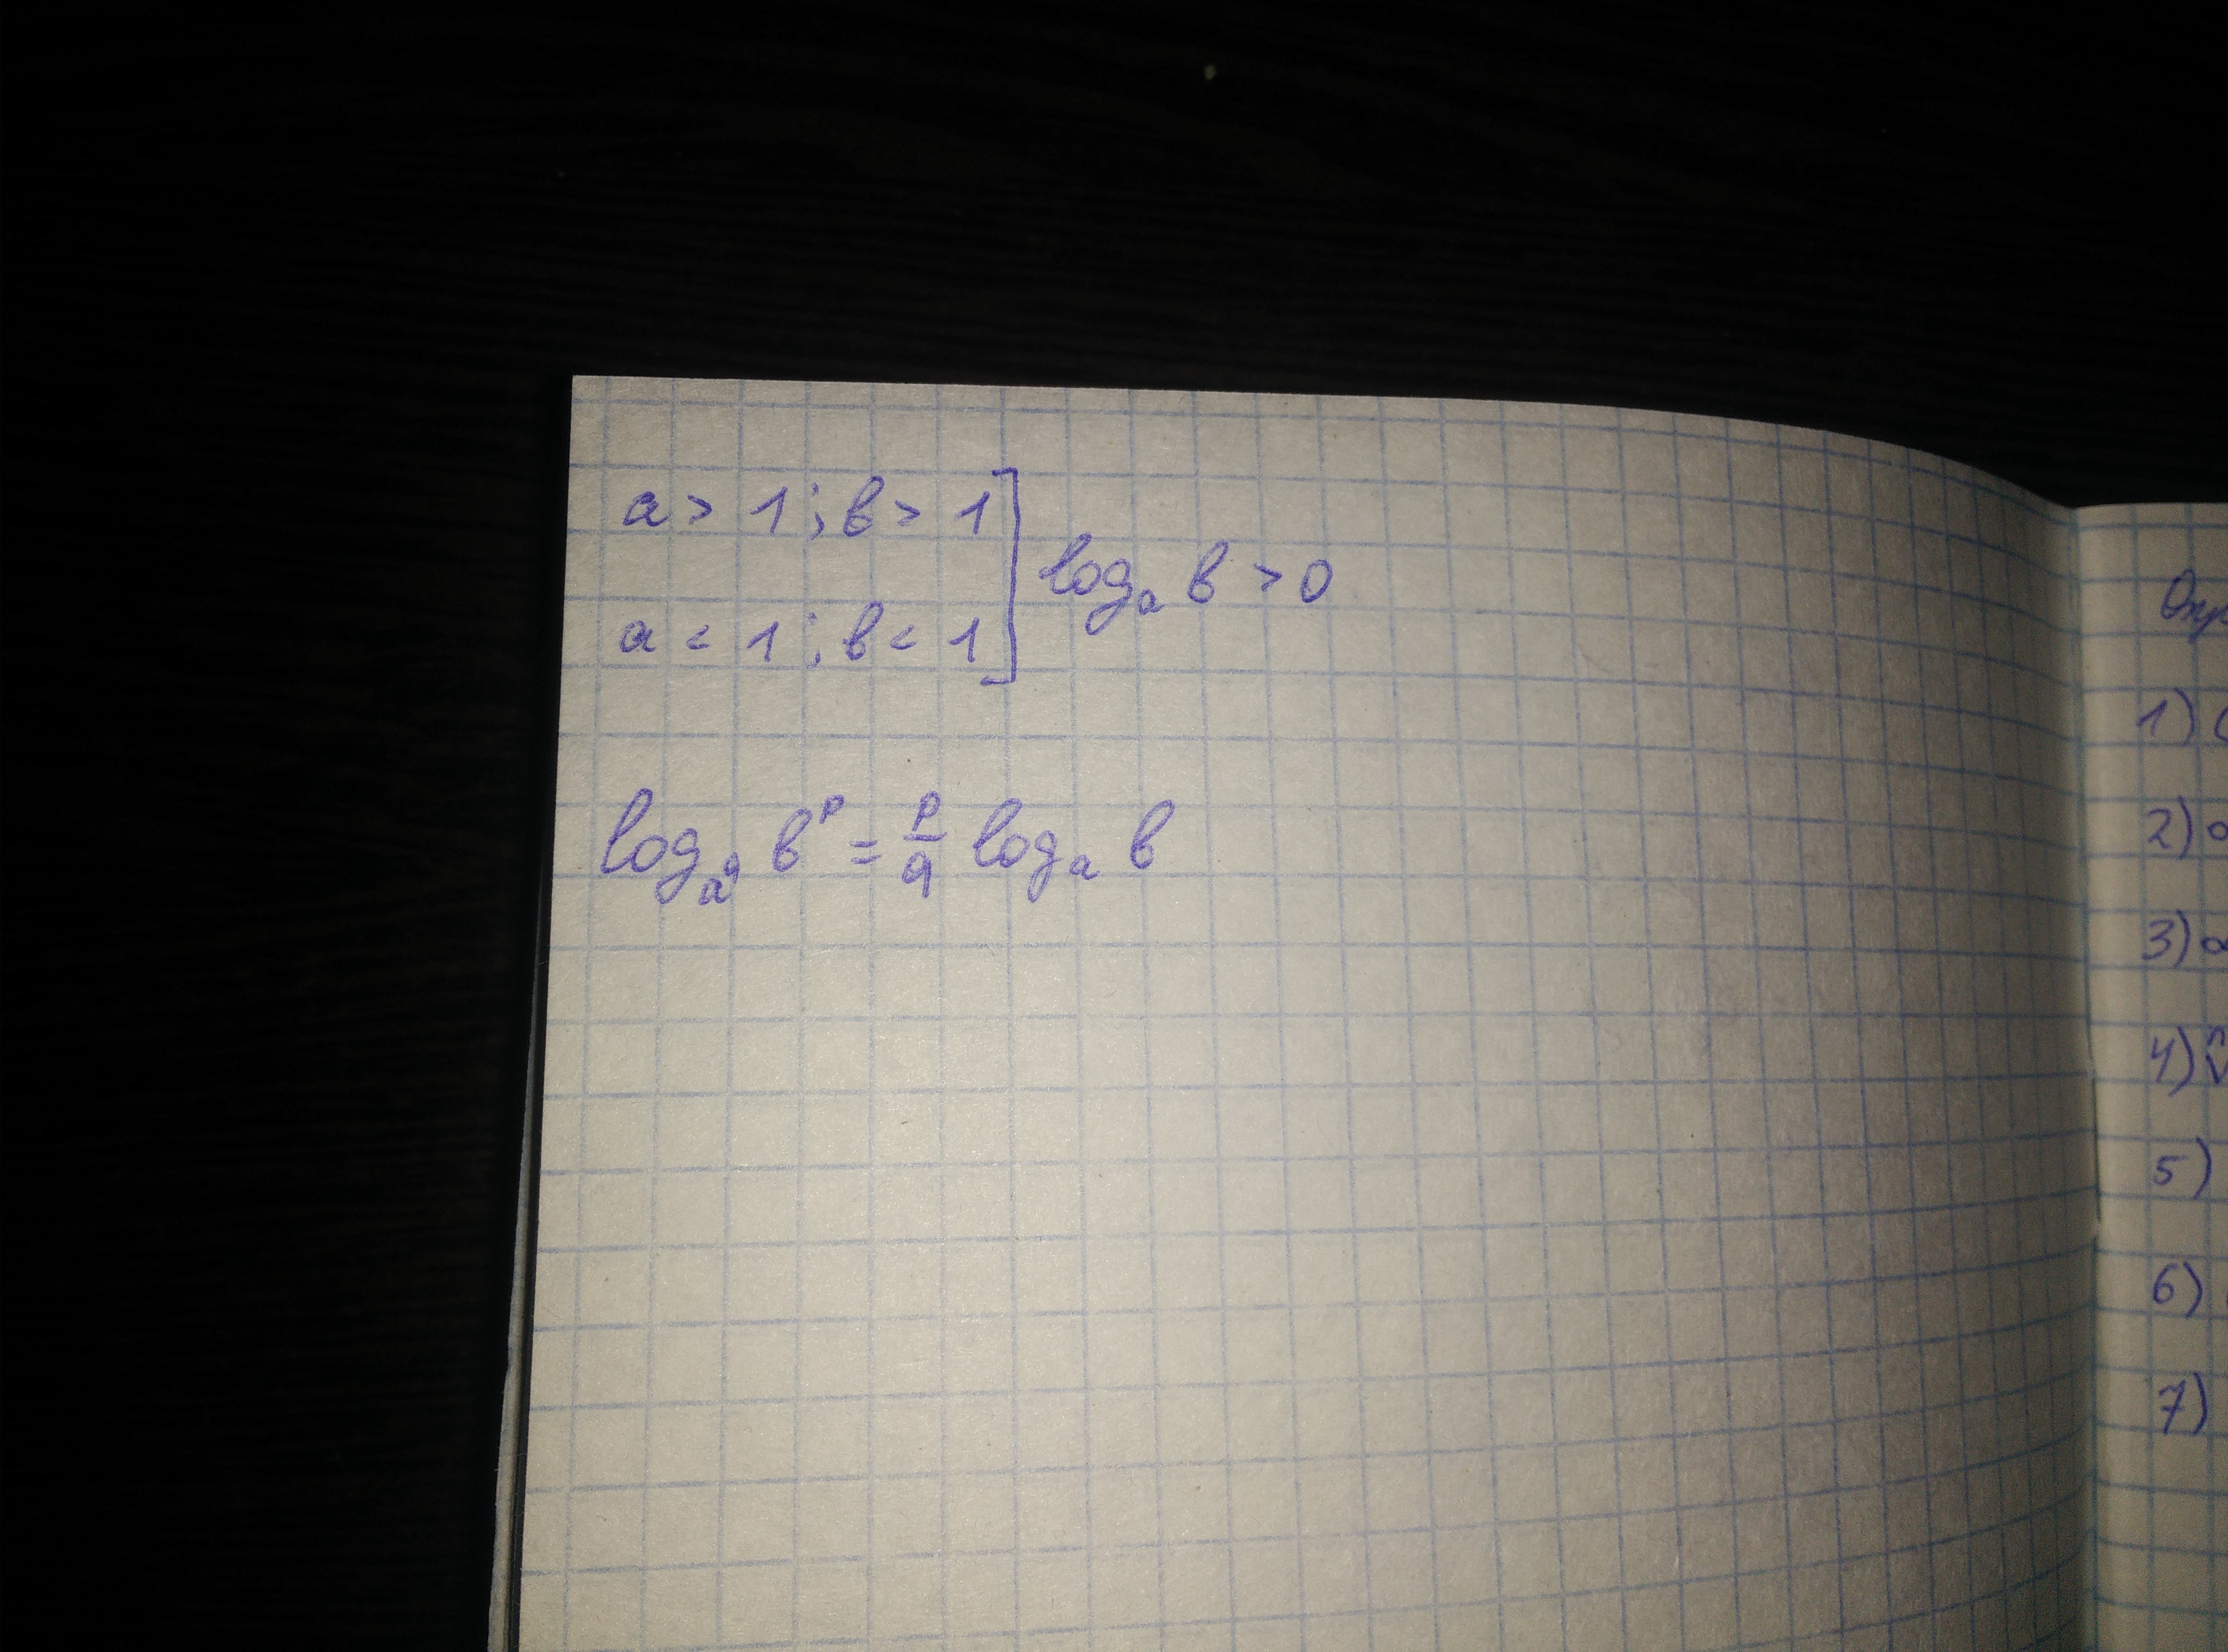 a > 1 ; в > 1
a < 1 ; в < 1
logₐ в > 0
log_{a^q} в^p = p/q logₐ в
1) (
2)
3)
4)
5)
6)
7)